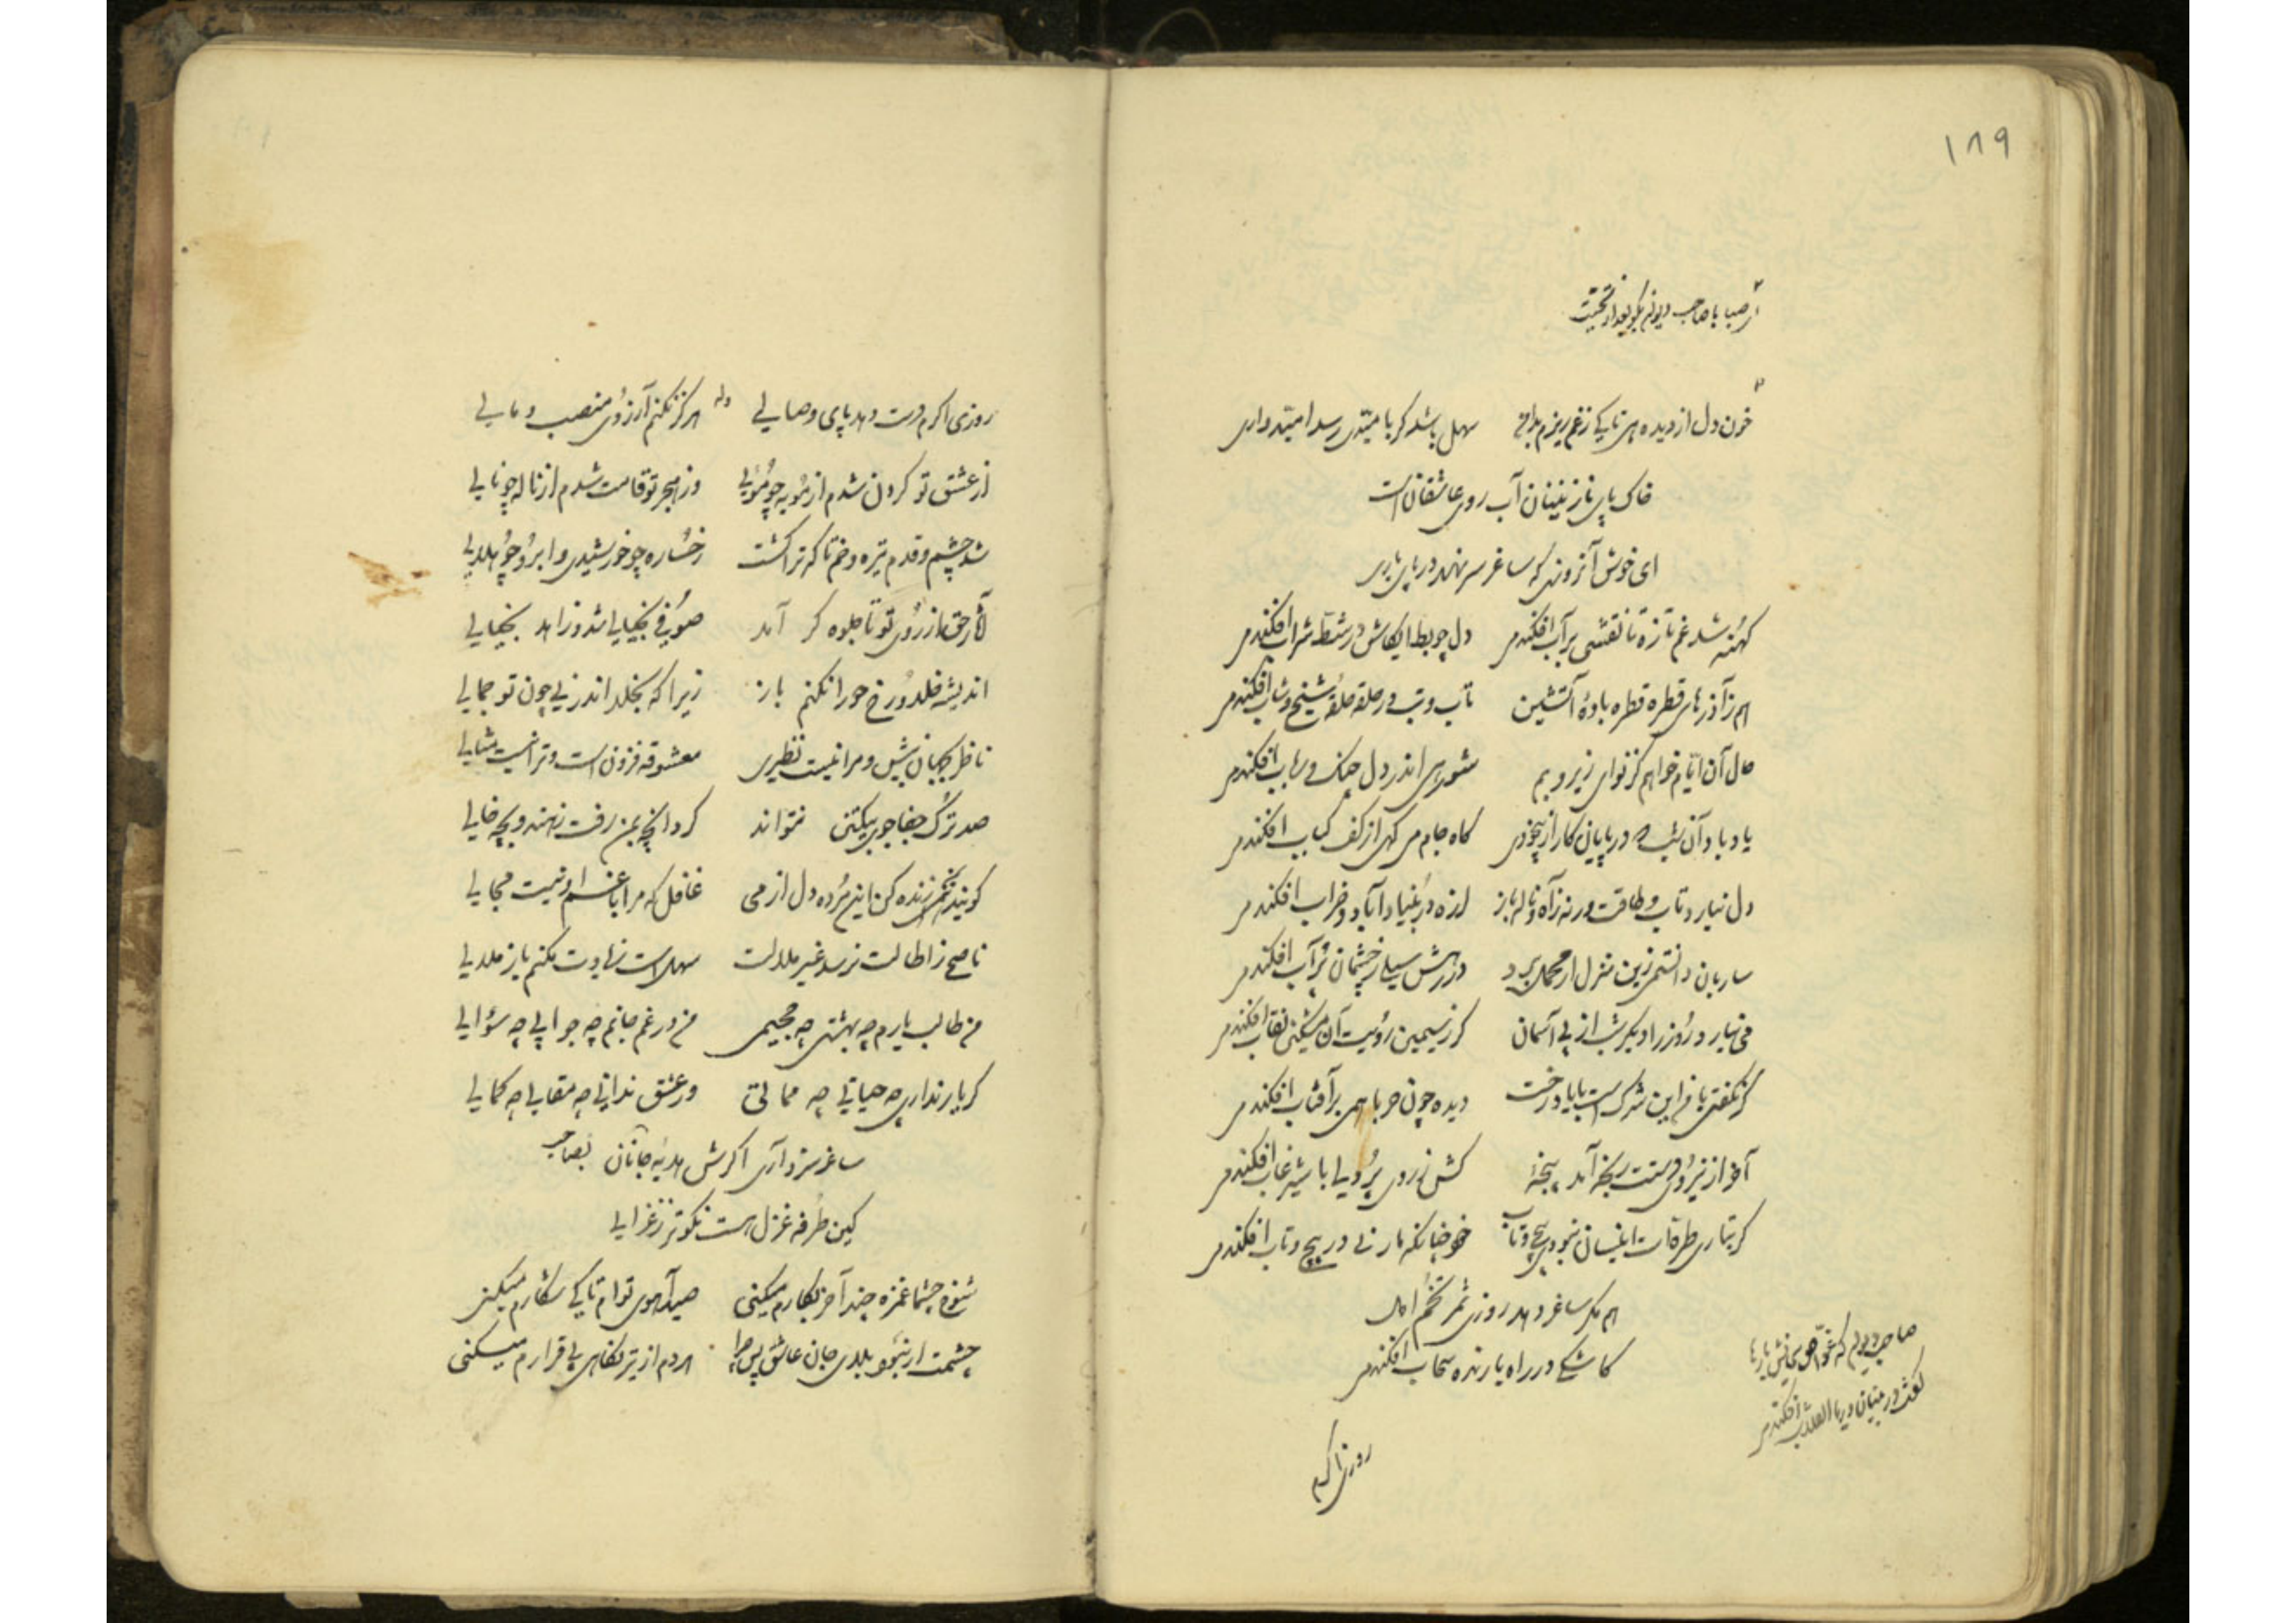 ۱۸۹
ای صبا با صاحب دیوان بگو بعد از تحیت
خون دل از دیده هی تا کی ز غم ریزم بدامن سهل باشد گر بامیدی رسد امیدواری
خاک پای نازنینان آب روی عاشقان است
ای خوش آنروزی که ساغر سر نهد در پای یاری
کهنه شد غم تازه تا نقشی بر آب افکندمی دل چو بط ایکاش در شط شراب افکندمی
هم ز آذرهای قطره قطره باده آتشین تاب و تب در حلقه حلقه شیخ و شاب افکندمی
حال آن ایام خواهم کز نوای زیر و بم شورها اندر دل چنگ و رباب افکندمی
یاد باد آن شب که در پایان کار از بیخودی گاه جام می گهی از کف کباب افکندمی
دل نیارد تاب و طاقت ورنه ز آه و ناله باز لرزه در بنیاد آباد و خراب افکندمی
ساربان دانستمی زین منزل ار محمل برد در رهش سیلی ز چشمان پر آب افکندمی
می نیارد روز را دیگر شب از پی آسمان گر ز سیمین رویت آن مشکین نقاب افکندمی
گر نگفتی با من این شرک است بابا در رخت دیده چون حربا همی بر آفتاب افکندمی
آخر از نیروی دستت رنجه آمد پنجه کش ز روی پردلی با شیر غاب افکندمی
گر بتاری طره‌ات اینسان نبودی پیچ و تاب خود چنانکه مار نی در پیچ و تاب افکندمی
هم مگر ساغر دهد روزی ثمر تخم امل
کاشکی در راه بارنده سحاب افکندمی
روزی اگرم
روزی اگرم دست دهد پای وصالی وله هرگز نکنم آرزوی منصب و مالی
از عشق تو گردن شدم از مویه چو مویی وز هجر تو قامت شدم از ناله چو نالی
شد چشم و قدم تیره و خم تا که ترا گشت رخساره چو خورشیدی و ابرو چو هلالی
آثار حق از روی تو تا جلوه گر آمد صوفی بخیالی شد و زاهد بخیالی
اندیشه خلد و رخ حورا نکنم باز زیرا که بخلد اندر نی چون تو جمالی
ناظر بجهان بیش و مرا نیست نظیری معشوقه فزون است و ترا نیست مثالی
صد ترک جفاجوی بیک تن نتواند کرد آنچه بمن رفت ز هندو بچه خالی
گویند بغم زنده کن این مرده دل از می غافل که مرا با غم او نیست مجالی
ناصح ز اطالت نرسد غیر ملالت سهل است زیادت مکنم باز ملالی
من طالب یارم چه بهشتی چه جحیمی من در غم جانم چه جوابی چه سؤالی
گر یار نداری چه حیاتی چه مماتی ور عشق ندانی چه مقالی چه کمالی
ساغر سزد آری اگرش هدیه جانان بصاحب
کین طرفه غزل هست نکوتر ز غزالی
شوخ چشما غمزه چند آخر بکارم میکنی صید آهوی توام تا کی شکارم میکنی
چشمت ار نبود بلای جان عاشق پس چرا هر دم از تیر نگاهی بی قرارم میکنی